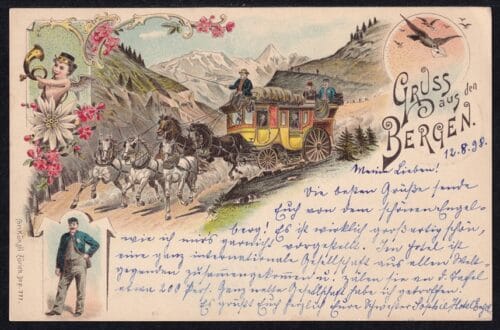 GRUSS
aus den
BERGEN.
12.8.98.
Meine Lieben!
Die besten Grüße sende
Euch von dem schönen Engel-
berg. Es ist wirklich großartig schön,
wie ich mirs garnicht vorgestellt. Im Hotel ist
eine ganz internationale Gesellschaft aus allen Welt-
gegenden zusammengekommen u. zählen sie an d. Tafel
etwa 200 Pers. Ganz nette Gesellschaft habe ich getroffen.
Es grüßt Euch herzlich Eure Schwester Sophie Hotel
Künzli Zürich Dep. 777.